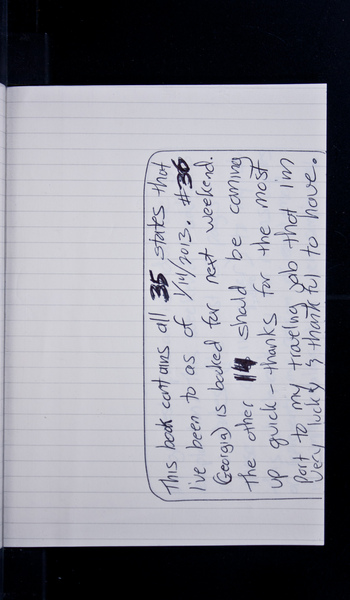 This book contains all 35 states that
I've been to as of 1/14/2013. #36
(Georgia) is booked for next weekend.
The other 14 should be coming
up quick - thanks for the most
part to my traveling job that im
very lucky & thankful to have.